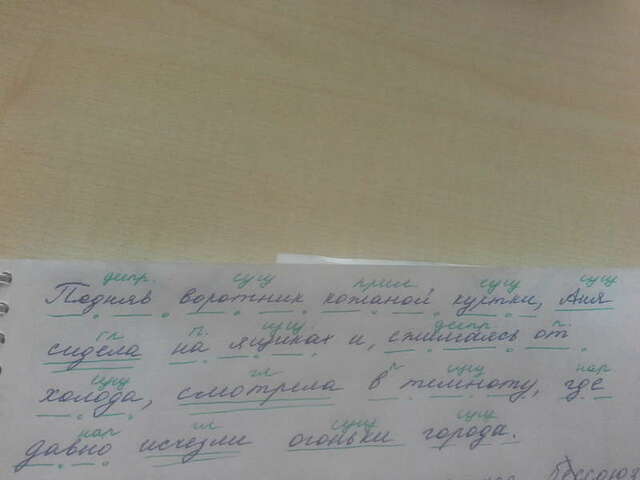 деепр. сущ прил. сущ сущ
Подняв воротник кожаной куртки, Аня
гл п. сущ деепр п.
сидела на ящиках и, сжимаясь от
сущ гл п сущ нар
холода, смотрела в темноту, где
нар гл сущ сущ
давно исчезли огоньки города.